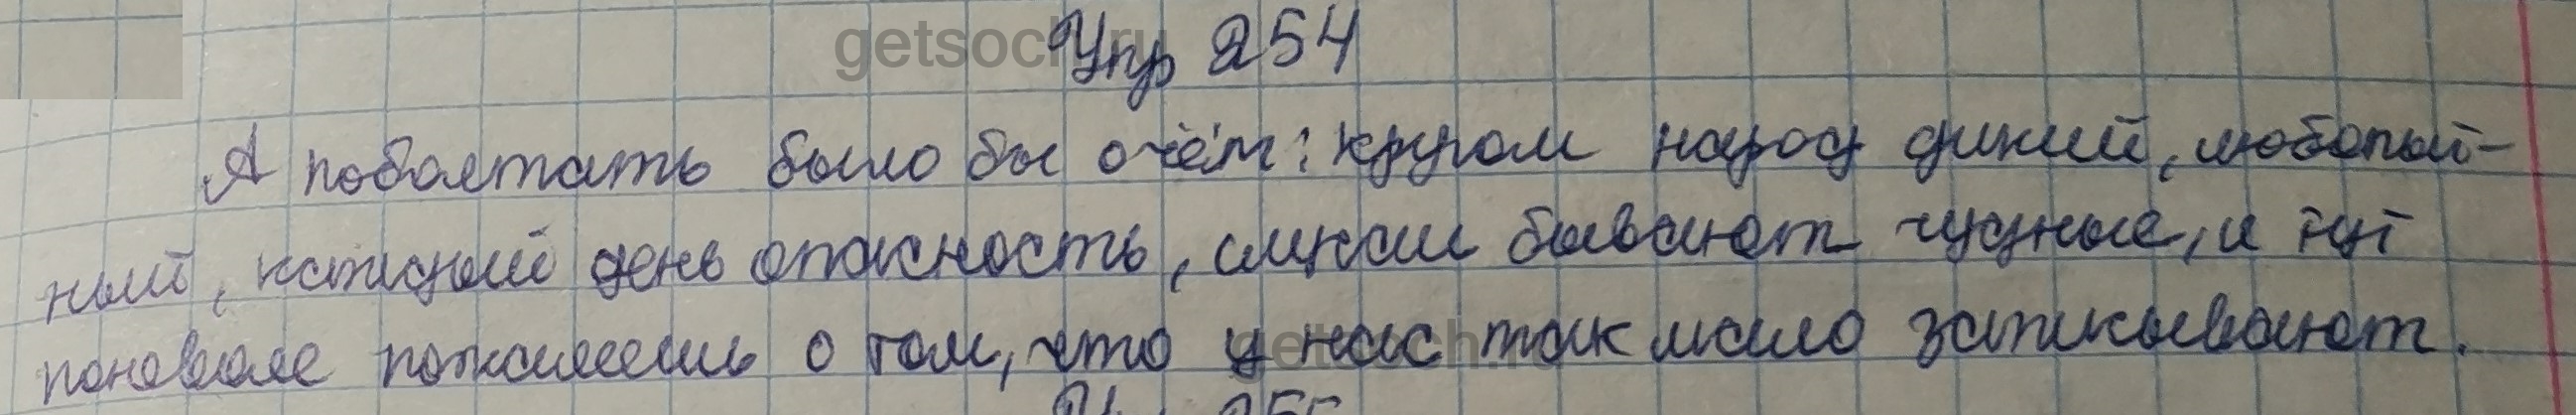 Упр 254
А поболтать было бы о чём: кругом народ дикий, любопый-
ный, каждый день опасность, случаи бывают чудные, и тут
поневоле пожалеешь о том, что у нас так мало записывают.
getsoch.ru
getsoch.ru